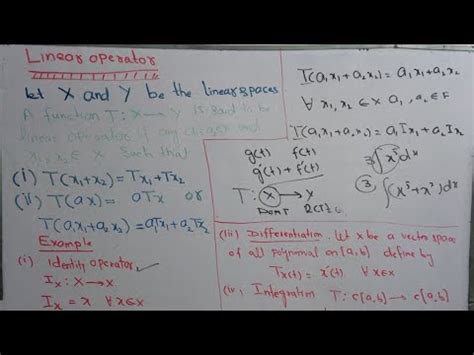 Linear operator
let X and Y be the linear spaces
A function T: X→Y is said to be
linear operator if any a1, a2∈F and
x1, x2 ∈ X Such that
(i) T(x1+x2) = Tx1+Tx2
(ii) T(ax) = aTx or
T(a1x1+a2x2) = a1Tx1+a2Tx2
Example
(i) Identity operator
Ix : X→X
Ix = x ∀ x∈x
T(a1x1+a2x2) = a1x1+a2x2
∀ x1, x2 ∈ X a1, a2 ∈ F
T(a1x1+a2x2) = a1Ix1+a2Ix2
g(t) f(t)
g'(t) + f'(t)
T: X → Y
③ ∫x³dx
③ ∫(x³+x²)dx
(iii) Differentiation. Let x be a vector space
of all polynomial on [a,b] define by
Tx(t) = x'(t) ∀ x∈X
(iv) Integration T: c[a,b] → c[a,b]